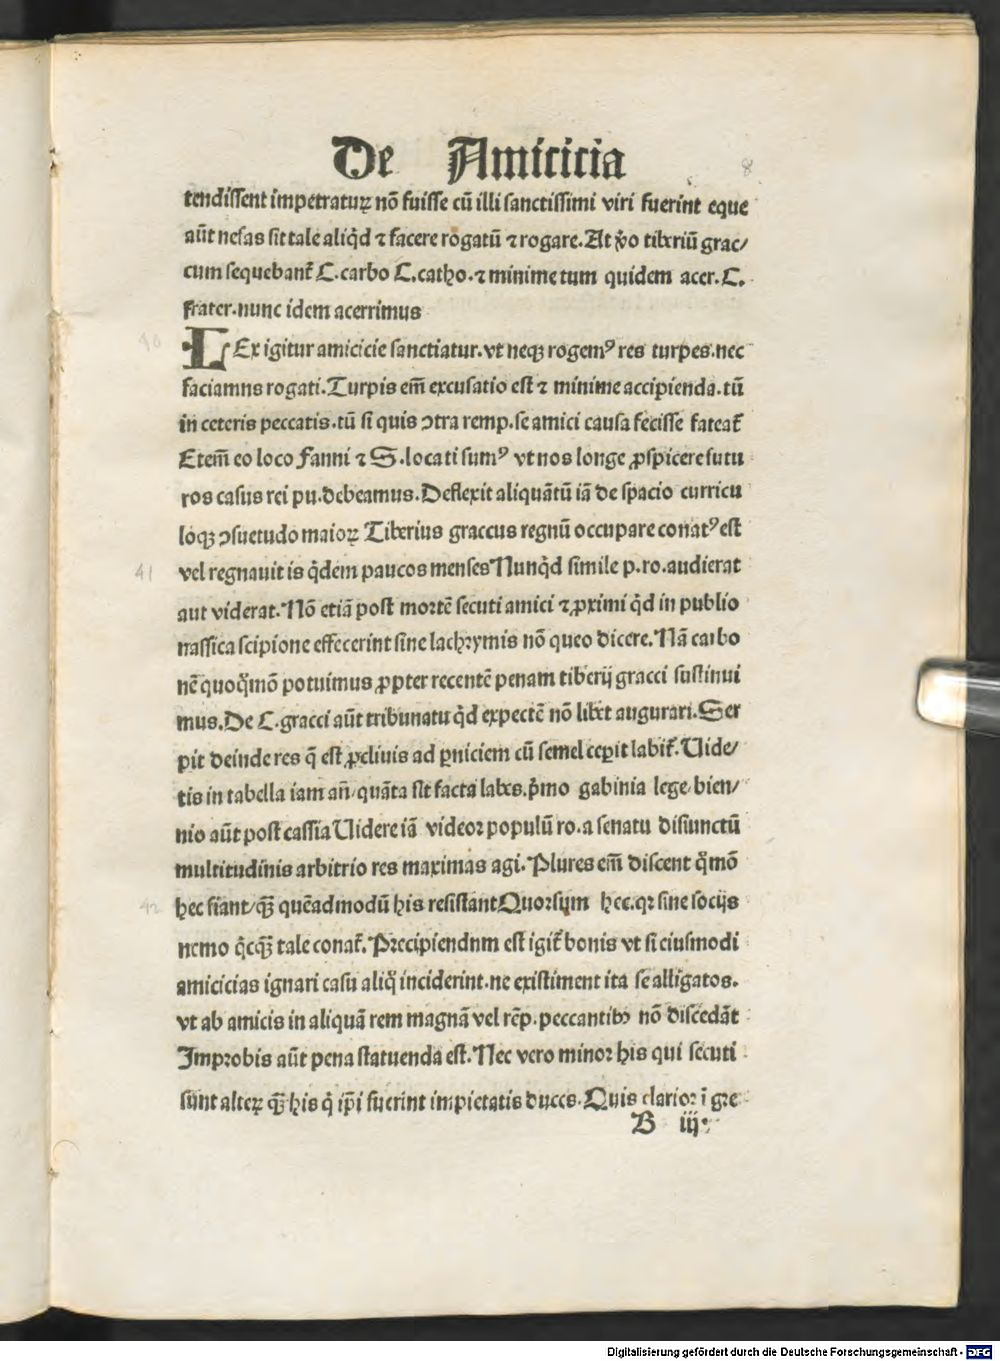 De Amicicia
8
tendissent impetraturꝝ nō fuisse cū illi sanctissimi viri fuerint eque
aūt nefas sit tale aliqͥd ⁊ facere rogatū ⁊ rogare. At ꝟo tiberiū grac/
cum sequebant̄ C. carbo C. catho. ⁊ minime tum quidem acer. C.
frater. nunc idem acerrimus
40
LEx igitur amicicie sanctiatur. vt neqꝫ rogemꝰ res turpes. nec
faciamns rogati. Turpis em̄ excusatio est ⁊ minime accipienda. tū
in ceteris peccatis. tū si quis ↄtra remp. se amici causa fecisse fateat̄
Etem̄ eo loco Fanni ⁊ S. locati sumꝰ vt nos longe ꝓspicere futu
ros casus rei pu. debeamus. Deflexit aliquātū iā de spacio curricu
loqꝫ ↄsuetudo maioꝝ Tiberius graccus regnū occupare conatꝰ est
41
vel regnauit is qͥdem paucos menses Nunqͥd simile p. ro. audierat
aut viderat. Nō etiā post mortē secuti amici ⁊ ꝓximi qͥd in publio
nassica scipione effecerint sine lachrymis nō queo dicere. Nā carbo
nē quoqͫmō potuimus ꝓpter recentē penam tiberij gracci sustinui
mus. De C. gracci aūt tribunatu qͥd expectē nō libet augurari. Ser
pit deinde res q̄ est ꝓcliuis ad ꝑniciem cū semel cepit labit̄. Uide/
tis in tabella iam an̄/ quāta sit facta labes. pͥmo gabinia lege/ bien/
nio aūt post cassia Uidere iā videor populū ro. a senatu disiunctū
multitudinis arbitrio res maximas agi. Plures em̄ discent qͫmō
42
hec fiant/ qꝫ̄ quēadmodū his resistant Quorsum hec. qꝛ sine socijs
nemo qͥcqꝫ̄ tale conat̄. Precipiendnm est igit̄ bonis vt si eiusmodi
amicicias ignari casu aliqͦ inciderint. ne existiment ita se alligatos.
vt ab amicis in aliquā rem magnā vel rēp. peccantibꝫ nō discedāt
Improbis aūt pena statuenda est. Nec vero minor his qui secuti
sunt alteꝝ qꝫ̄ his qͥ ip̄i fuerint impietatis duces. Quis clarior ī gre
B iij
Digitalisierung gefördert durch die Deutsche Forschungsgemeinschaft - DFG